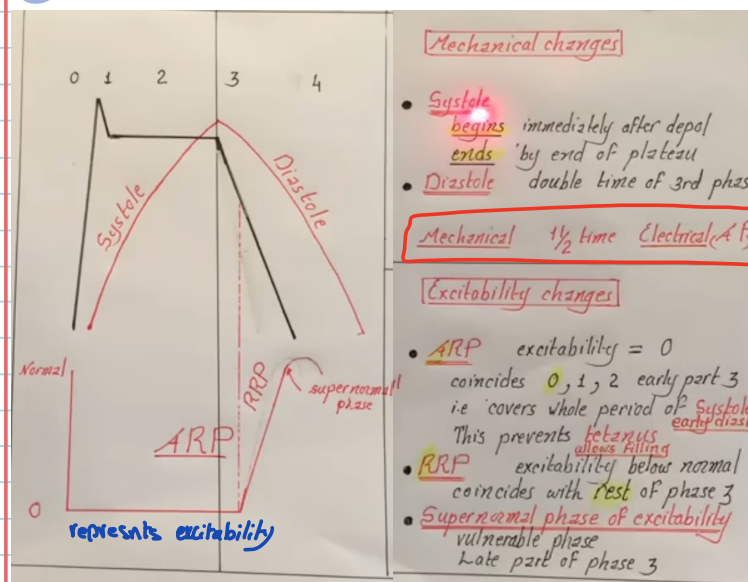 0 1 2 3 4
Systole
Diastole
Normal
RRP
supernormal
phase
ARP
0
represnts excitability
Mechanical changes
• Systole
begins immediately after depol
ends by end of plateau
• Diastole double time of 3rd phas
Mechanical 1 1/2 time Electrical (AP)
Excitability changes
• ARP excitability = 0
coincides 0, 1, 2 early part 3
i.e covers whole period of Systole
early diast
This prevents tetanus
allows filling
• RRP excitability below normal
coincides with rest of phase 3
• Supernormal phase of excitability
vulnerable phase
Late part of phase 3